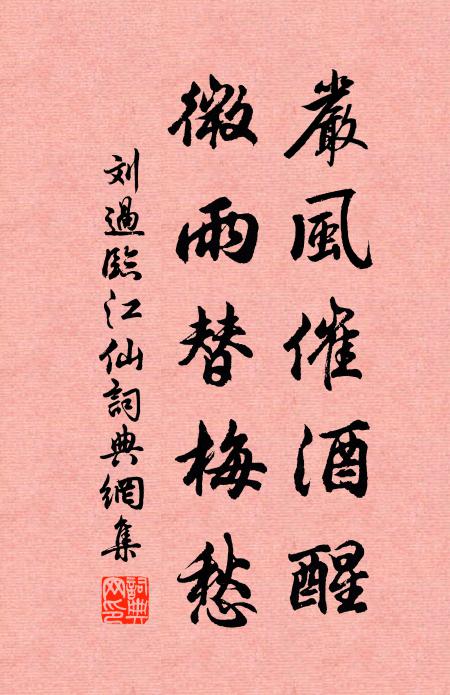 嚴風催酒醒
微雨替梅愁
刘過臨江仙詞典網集
詞典網印